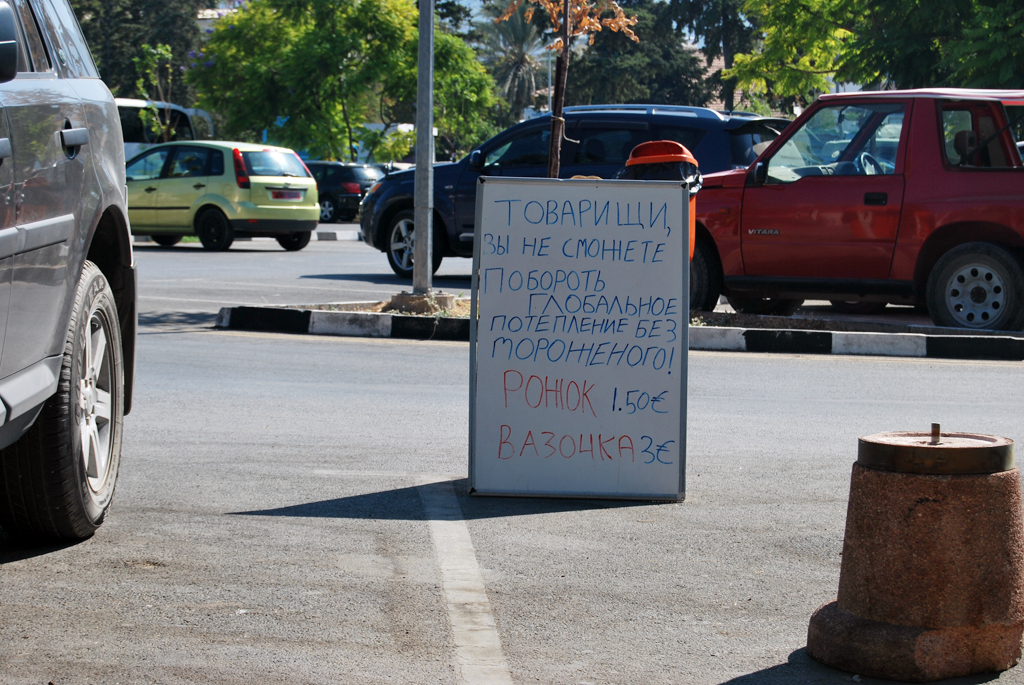 ТОВАРИЩИ,
ВЫ НЕ СМОЖЕТЕ
ПОБОРОТЬ
ГЛОБАЛЬНОЕ
ПОТЕПЛЕНИЕ БЕЗ
МОРОЖЕНОГО!
РОЖОК 1.50€
ВАЗОЧКА 3€
VITARA